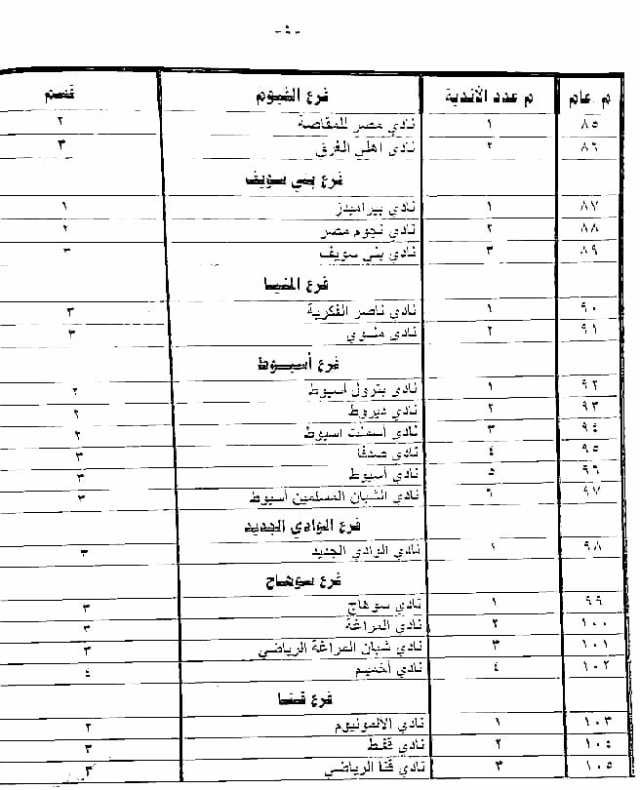 - ٥ -
م. عام م عدد الأندية فرع الفيوم قسم
٨٥ ١ نادي مصر للمقاصة ٢
٨٦ ٢ نادي اهلي الغرق ٣
فرع بني سويف
٨٧ ١ نادي بيراميدز ١
٨٨ ٢ نادي نجوم مصر ٢
٨٩ ٣ نادي بني سويف ٣
فرع المنيا
٩٠ ١ نادي ناصر الفكرية ٣
٩١ ٢ نادي منلوي ٣
فرع أسيوط
٩٢ ١ نادي بترول اسيوط ٢
٩٣ ٢ نادي ديروط ٢
٩٤ ٣ نادي أسمنت اسيوط ٢
٩٥ ٤ نادي صدفا ٣
٩٦ ٥ نادي أسيوط ٣
٩٧ ٦ نادي الشبان المسلمين أسيوط ٣
فرع الوادي الجديد
٩٨ ١ نادي الوادي الجديد ٣
فرع سوهاج
٩٩ ١ نادي سوهاج ٣
١٠٠ ٢ نادي المراغة ٣
١٠١ ٣ نادي شبان المراغة الرياضي ٣
١٠٢ ٤ نادي أخميم ٤
فرع قنا
١٠٣ ١ نادي الالمونيوم ٢
١٠٤ ٢ نادي قفط ٣
١٠٥ ٣ نادي قنا الرياضي ٣